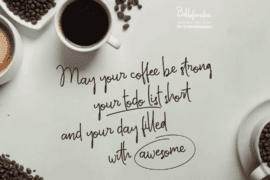 May your coffee be strong
your todo list short
and your day filled
with awesome